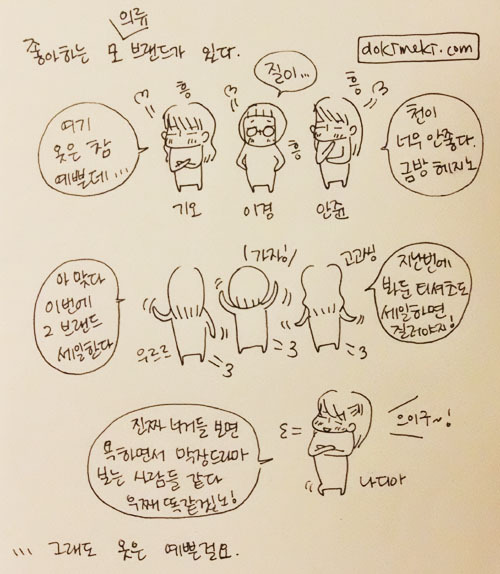 의류
좋아하는 모 브랜드가 있다.
dokimeki.com
여기
옷은 참
예쁠데...
흥
질이...
흥
흥
천이
너무 안좋다.
금방 헤지노
기오
이경
안쥰
아 맞다
이번에
2 브랜드
세일한다
우르르
(가자!)
고고씽
지난번에
봐둔 티셔츠도
세일하면
질러야지!
진짜 너거들 보면
욕하면서 막장드라마
보는 사람들 같다
우째 똑같겠노!
으이구~!
나디아
... 그래도 옷은 예쁜걸요.